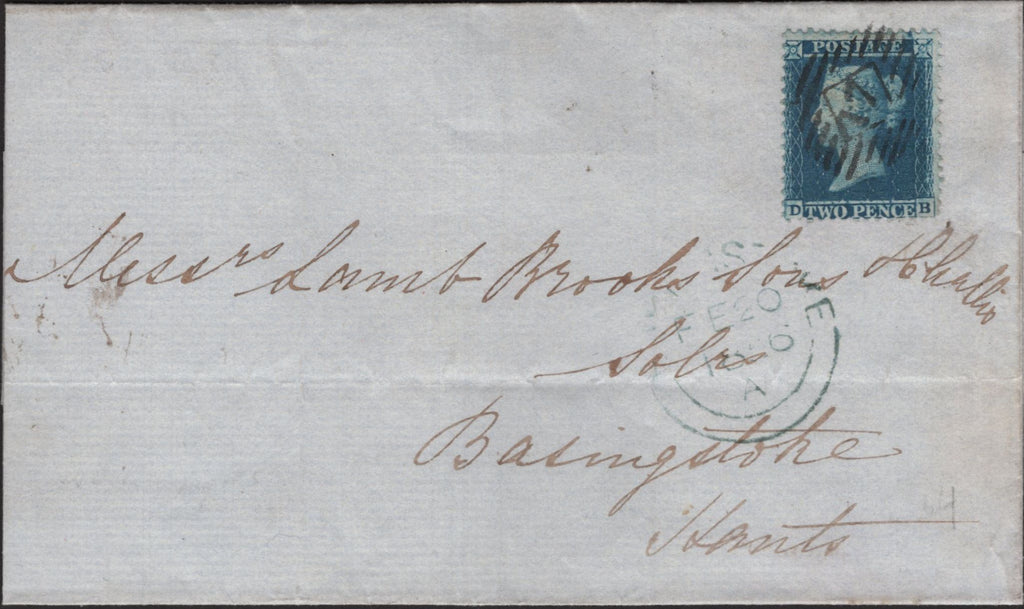 POSTAGE
D TWO PENCE B
Messrs Lamb Brooks Sons &
FE 20
Solrs
A
Basingstoke
Hants
44